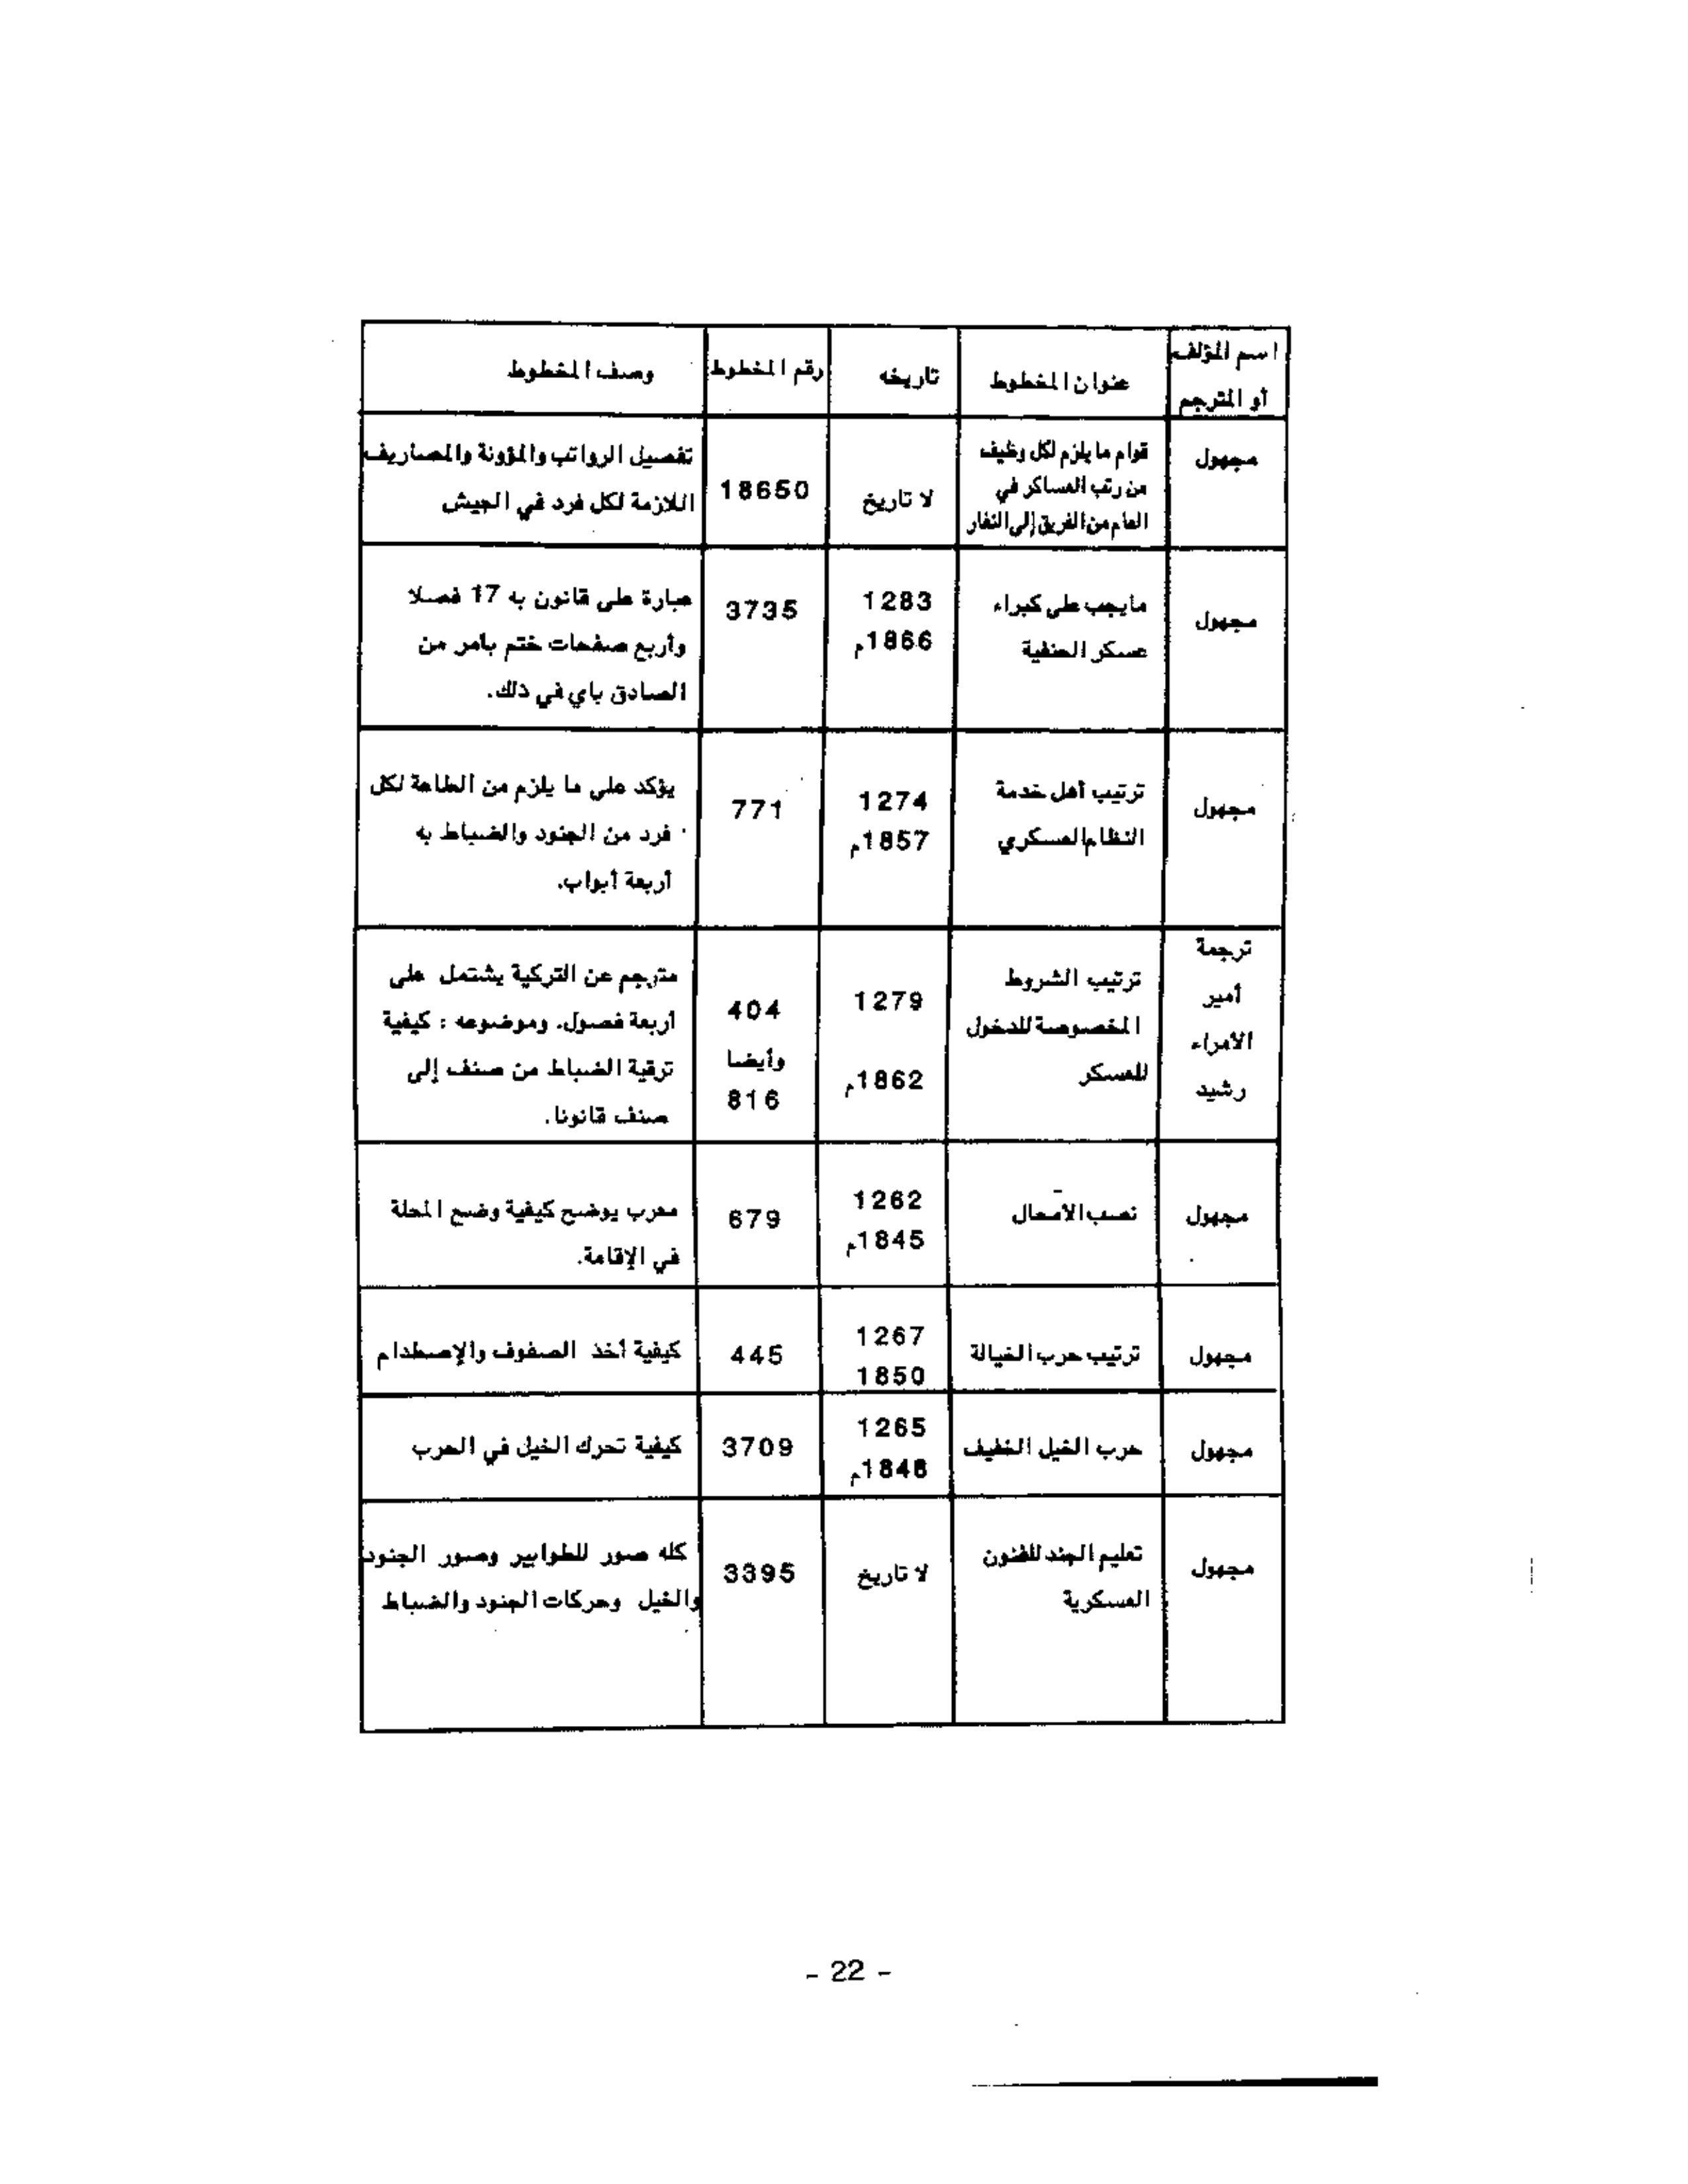 اسم المؤلف
أو المترجم
عنوان المخطوط
تاريخه
رقم المخطوط
وصف المخطوط
مجهول
قوام ما يلزم لكل وظيف
من رتب العساكر في
العام من الفريق إلى النفار
لا تاريخ
18650
تفصيل الرواتب والمؤونة والمصاريف
اللازمة لكل فرد في الجيش
مجهول
مايجب على كبراء
عسكر الحنفية
1283
1866م
3735
عبارة على قانون به 17 فصلا
وأربع صفحات ختم بأمر من
الصادق باي في ذلك.
مجهول
ترتيب أهل خدمة
النظام العسكري
1274
1857م
771
يؤكد على ما يلزم من الطاعة لكل
فرد من الجنود والضباط به
أربعة أبواب.
ترجمة
أمير
الأمراء
رشيد
ترتيب الشروط
المخصوصة للدخول
للعسكر
1279
1862م
404
وأيضا
816
مترجم عن التركية يشتمل على
أربعة فصول. وموضوعه : كيفية
ترقية الضباط من صنف إلى
صنف قانونا.
مجهول
نصب الأمحال
1262
1845م
679
معرب يوضح كيفية وضع المحلة
في الإقامة.
مجهول
ترتيب حرب الخيالة
1267
1850
445
كيفية أخذ الصفوف والإصطدام
مجهول
حرب الخيل الخفيف
1265
1848م
3709
كيفية تحرك الخيل في الحرب
مجهول
تعليم الجند للفنون
العسكرية
لا تاريخ
3395
كله صور للطوابير وصور الجنود
والخيل وحركات الجنود والضباط
- 22 -